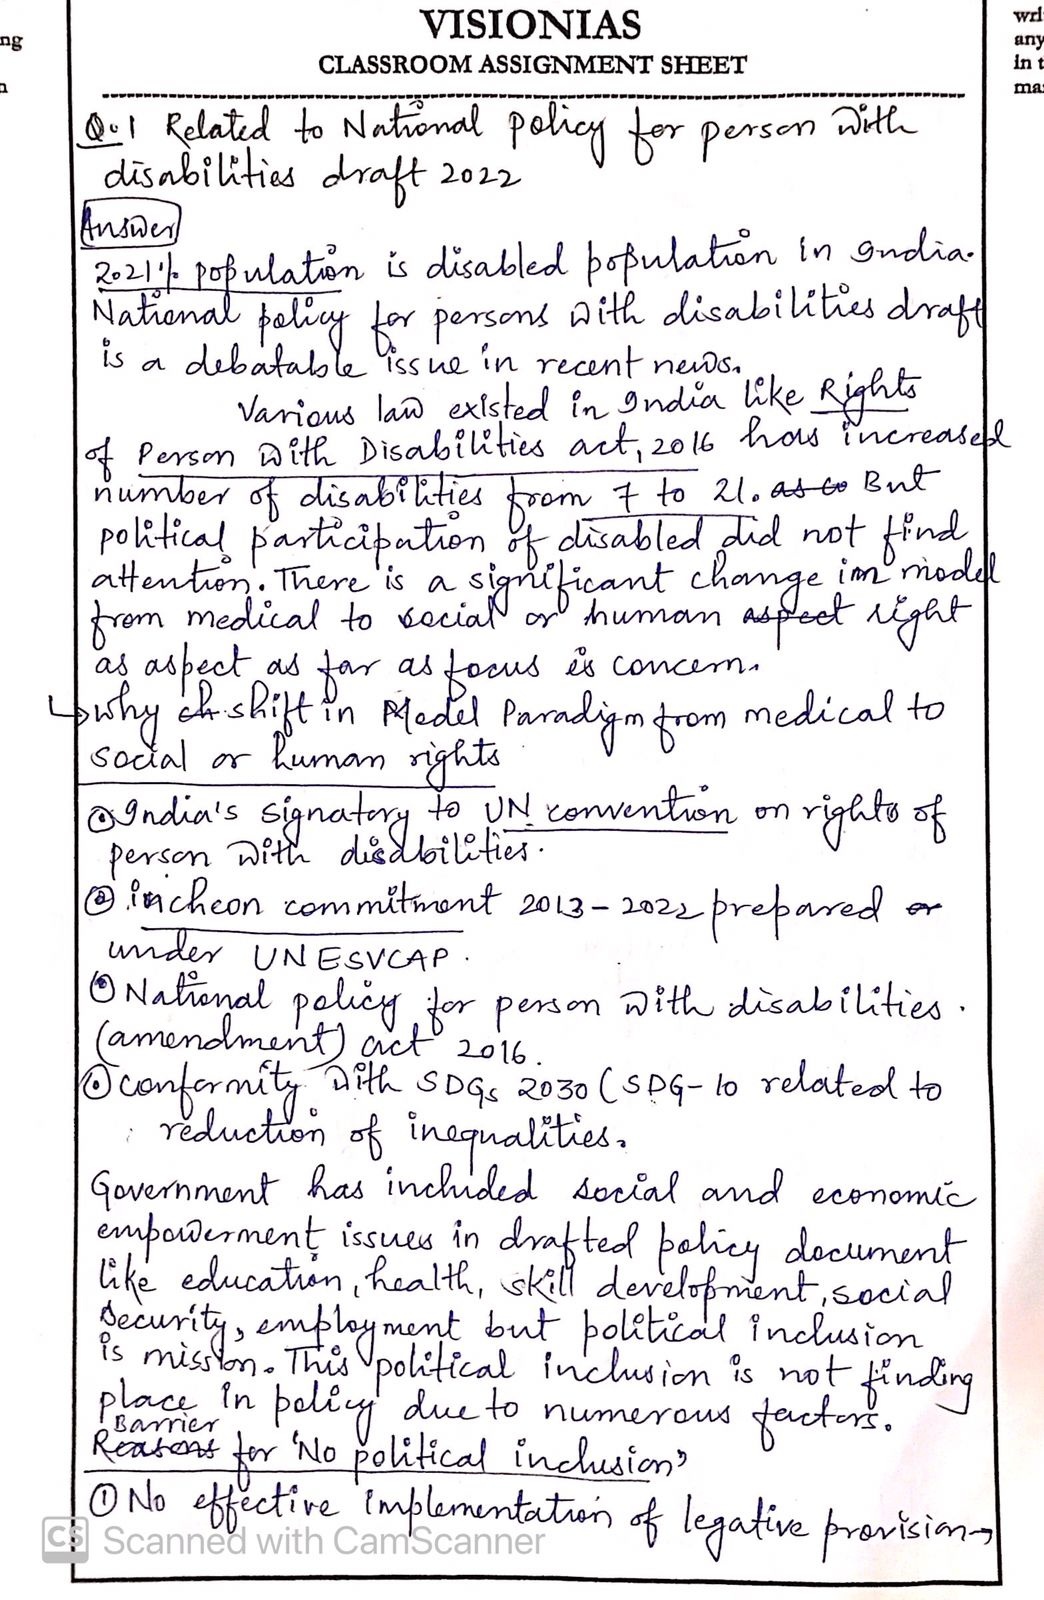 VISIONIAS
CLASSROOM ASSIGNMENT SHEET
ng
n
wri
any
in t
ma
Q.1 Related to National policy for person with
disabilities draft 2022
Answer
2.021% population is disabled population in India.
National policy for persons with disabilities draft
is a debatable issue in recent news.
Various law existed in India like Rights
of Person with Disabilities act, 2016 has increased
number of disabilities from 7 to 21. as co But
political participation of disabled did not find
attention. There is a significant change in model
from medical to social or human aspect right
as aspect as far as focus is concern.
↳ why ch shift in Model Paradigm from medical to
social or human rights
① India's signatory to UN convention on rights of
person with disabilities.
② incheon commitment 2013-2022 prepared or
under UNESVCAP.
National policy for person with disabilities.
(amendment) act 2016.
conformity with SDGs 2030 (SDG-10 related to
reduction of inequalities.
Government has included social and economic
empowerment issues in drafted policy document
like education, health, skill development, social
security, employment but political inclusion
is mission. This political inclusion is not finding
place in policy due to numerous factors.
Barrier
Reasons for 'No political inclusion'
① No effective implementation of legative provision→
CS Scanned with CamScanner